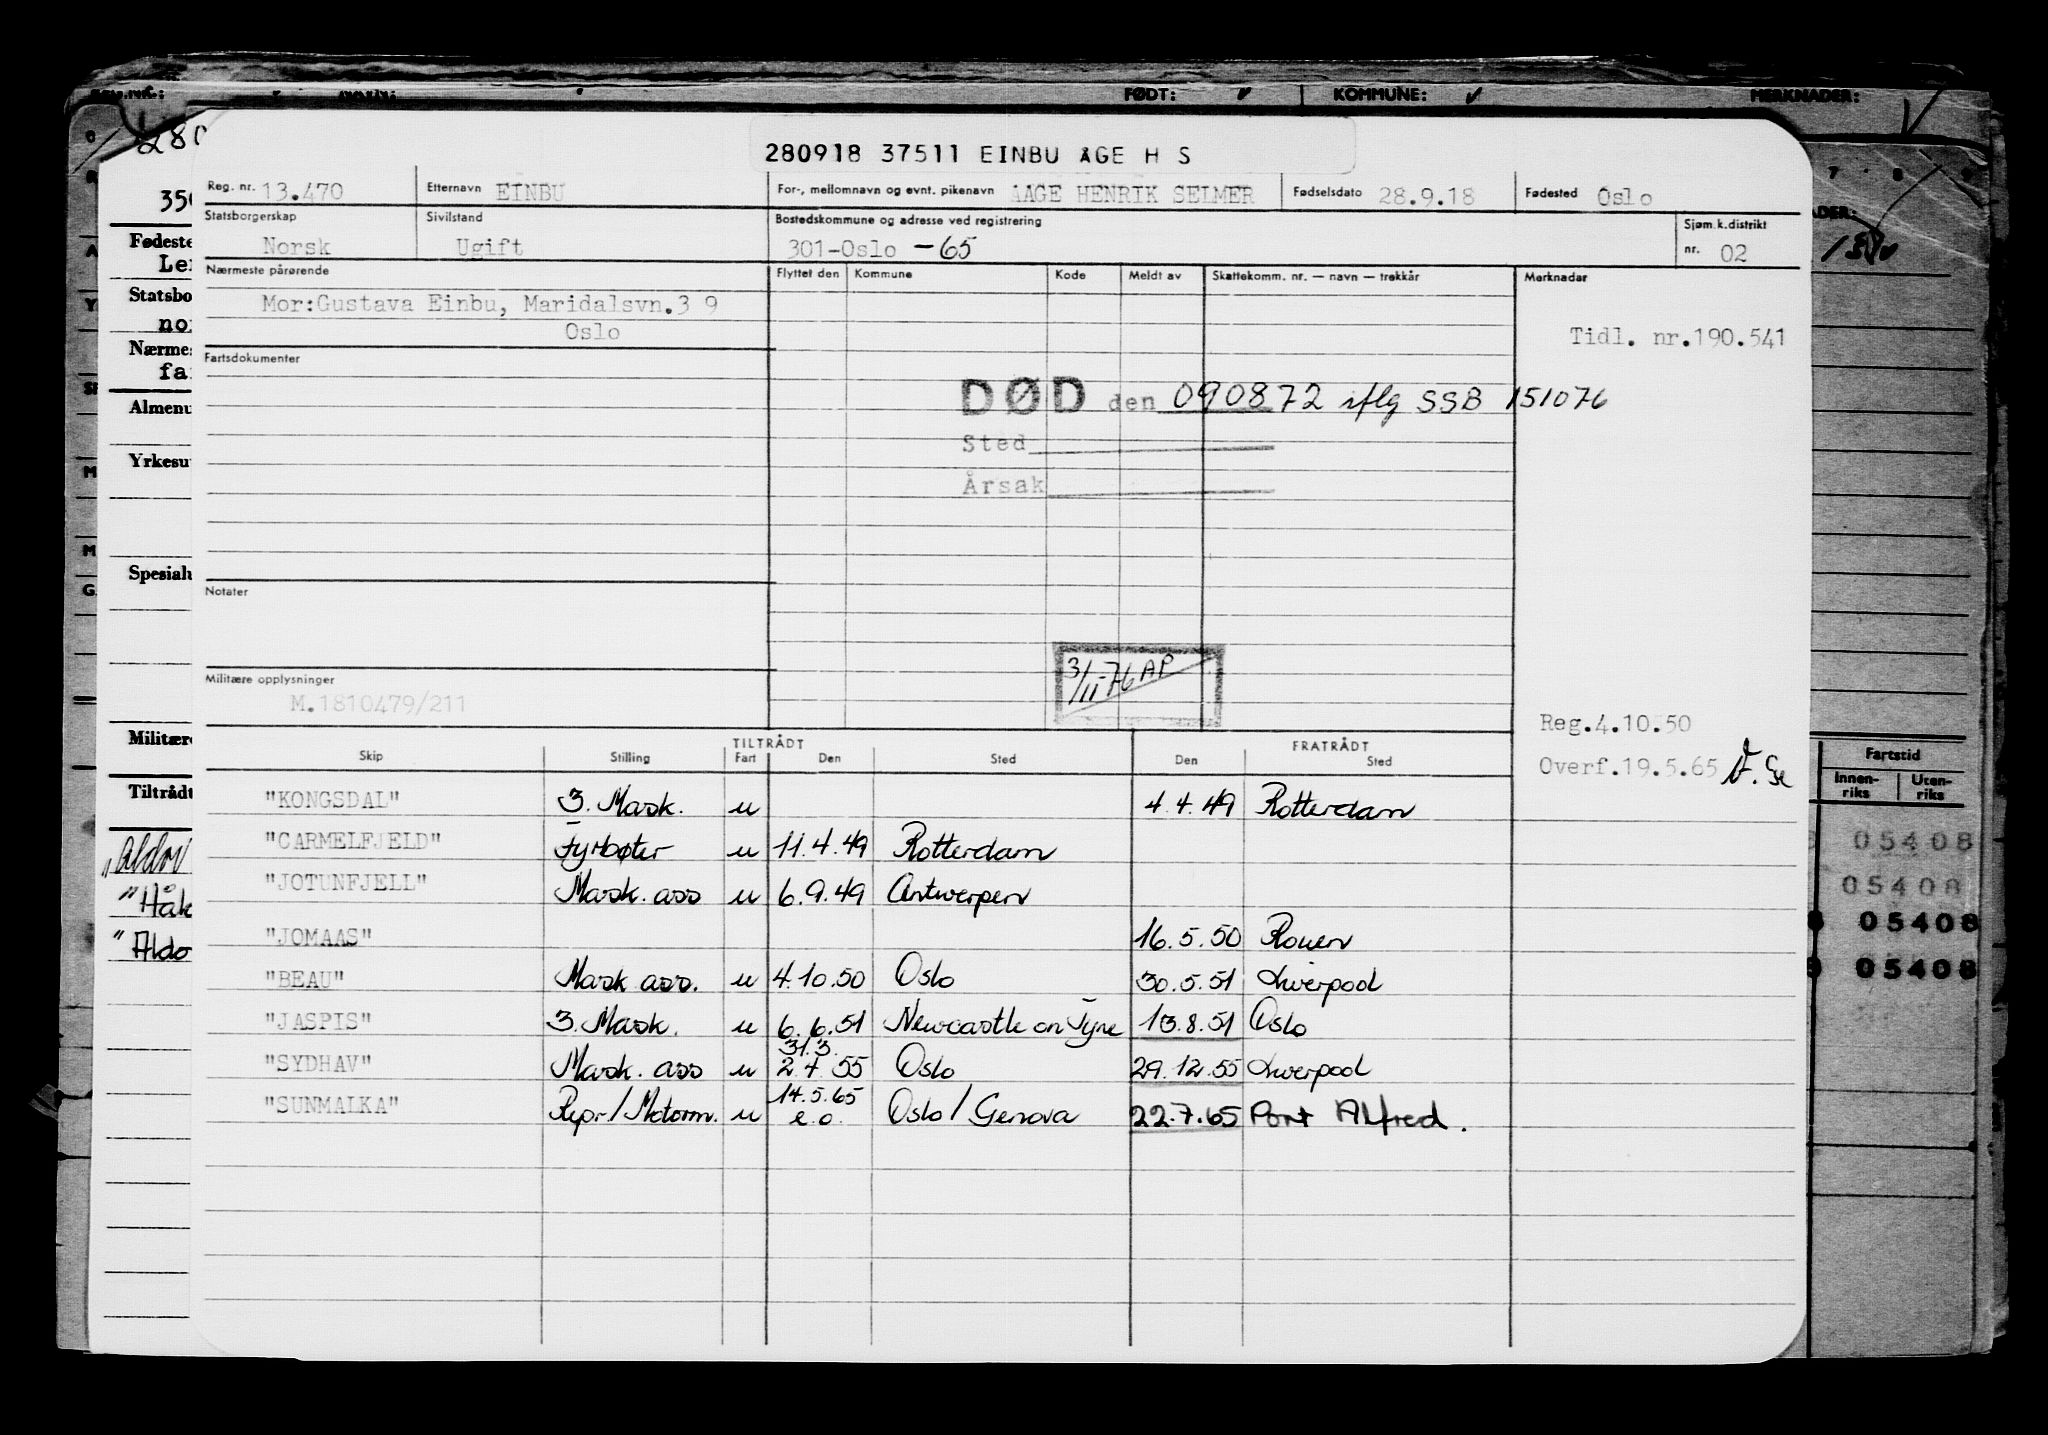 FØDT: KOMMUNE: MERKNADER:
280918 37511 EINBU ÅGE H S
Reg. nr. 13.470 Etternavn EINBU For-, mellomnavn og evnt. pikenavn AAGE HENRIK SELMER Fødselsdato 28.9.18 Fødested Oslo
Statsborgerskap Sivilstand Bostedskommune og adresse ved registrering Sjøm.k.distrikt
Norsk Ugift 301-Oslo -65 nr. 02
Nærmeste pårørende Flyttet den Kommune Kode Meldt av Skattekomm. nr. — navn — trekkår Merknader
Mor:Gustava Einbu, Maridalsvn.3 9
Oslo
Tidl. nr.190.541
Fartsdokumenter
DØD den 090872 iflg SSB 151076
Sted
Årsak
Notater
3/11-76 AP
Militære opplysninger
M.1810479/211
Reg.4.10.50
Overf.19.5.65
TILTRÅDT FRATRÅDT
Skip Stilling Fart Den Sted Den Sted
"KONGSDAL" 3. Mask. u 4.4.49 Rotterdam
"CARMELFJELD" Fyrbøter u 11.4.49 Rotterdam
"JOTUNFJELL" Mask. ass u 6.9.49 Antwerpen
"JOMAAS" 16.5.50 Rouen
"BEAU" Mask ass. u 4.10.50 Oslo 30.5.51 Liverpool
"JASPIS" 3. Mask. u 6.6.51 Newcastle on Tyne 13.8.51 Oslo
31.3.
"SYDHAV" Mask. ass u 2.4.55 Oslo 29.12.55 Liverpool
14.5.65
"SUNMALKA" Repr/Motorm. u e.o. Oslo/Genova 22.7.65 Port Alfred.
280
350
Fødeste
Statsbo
Nærmes
Almenu
Yrkesu
Spesialu
Militære
Tiltrådt
"Håk
"Aldo
Fartstid
Innen-riks Uten-riks
05408
05408
05408
05408